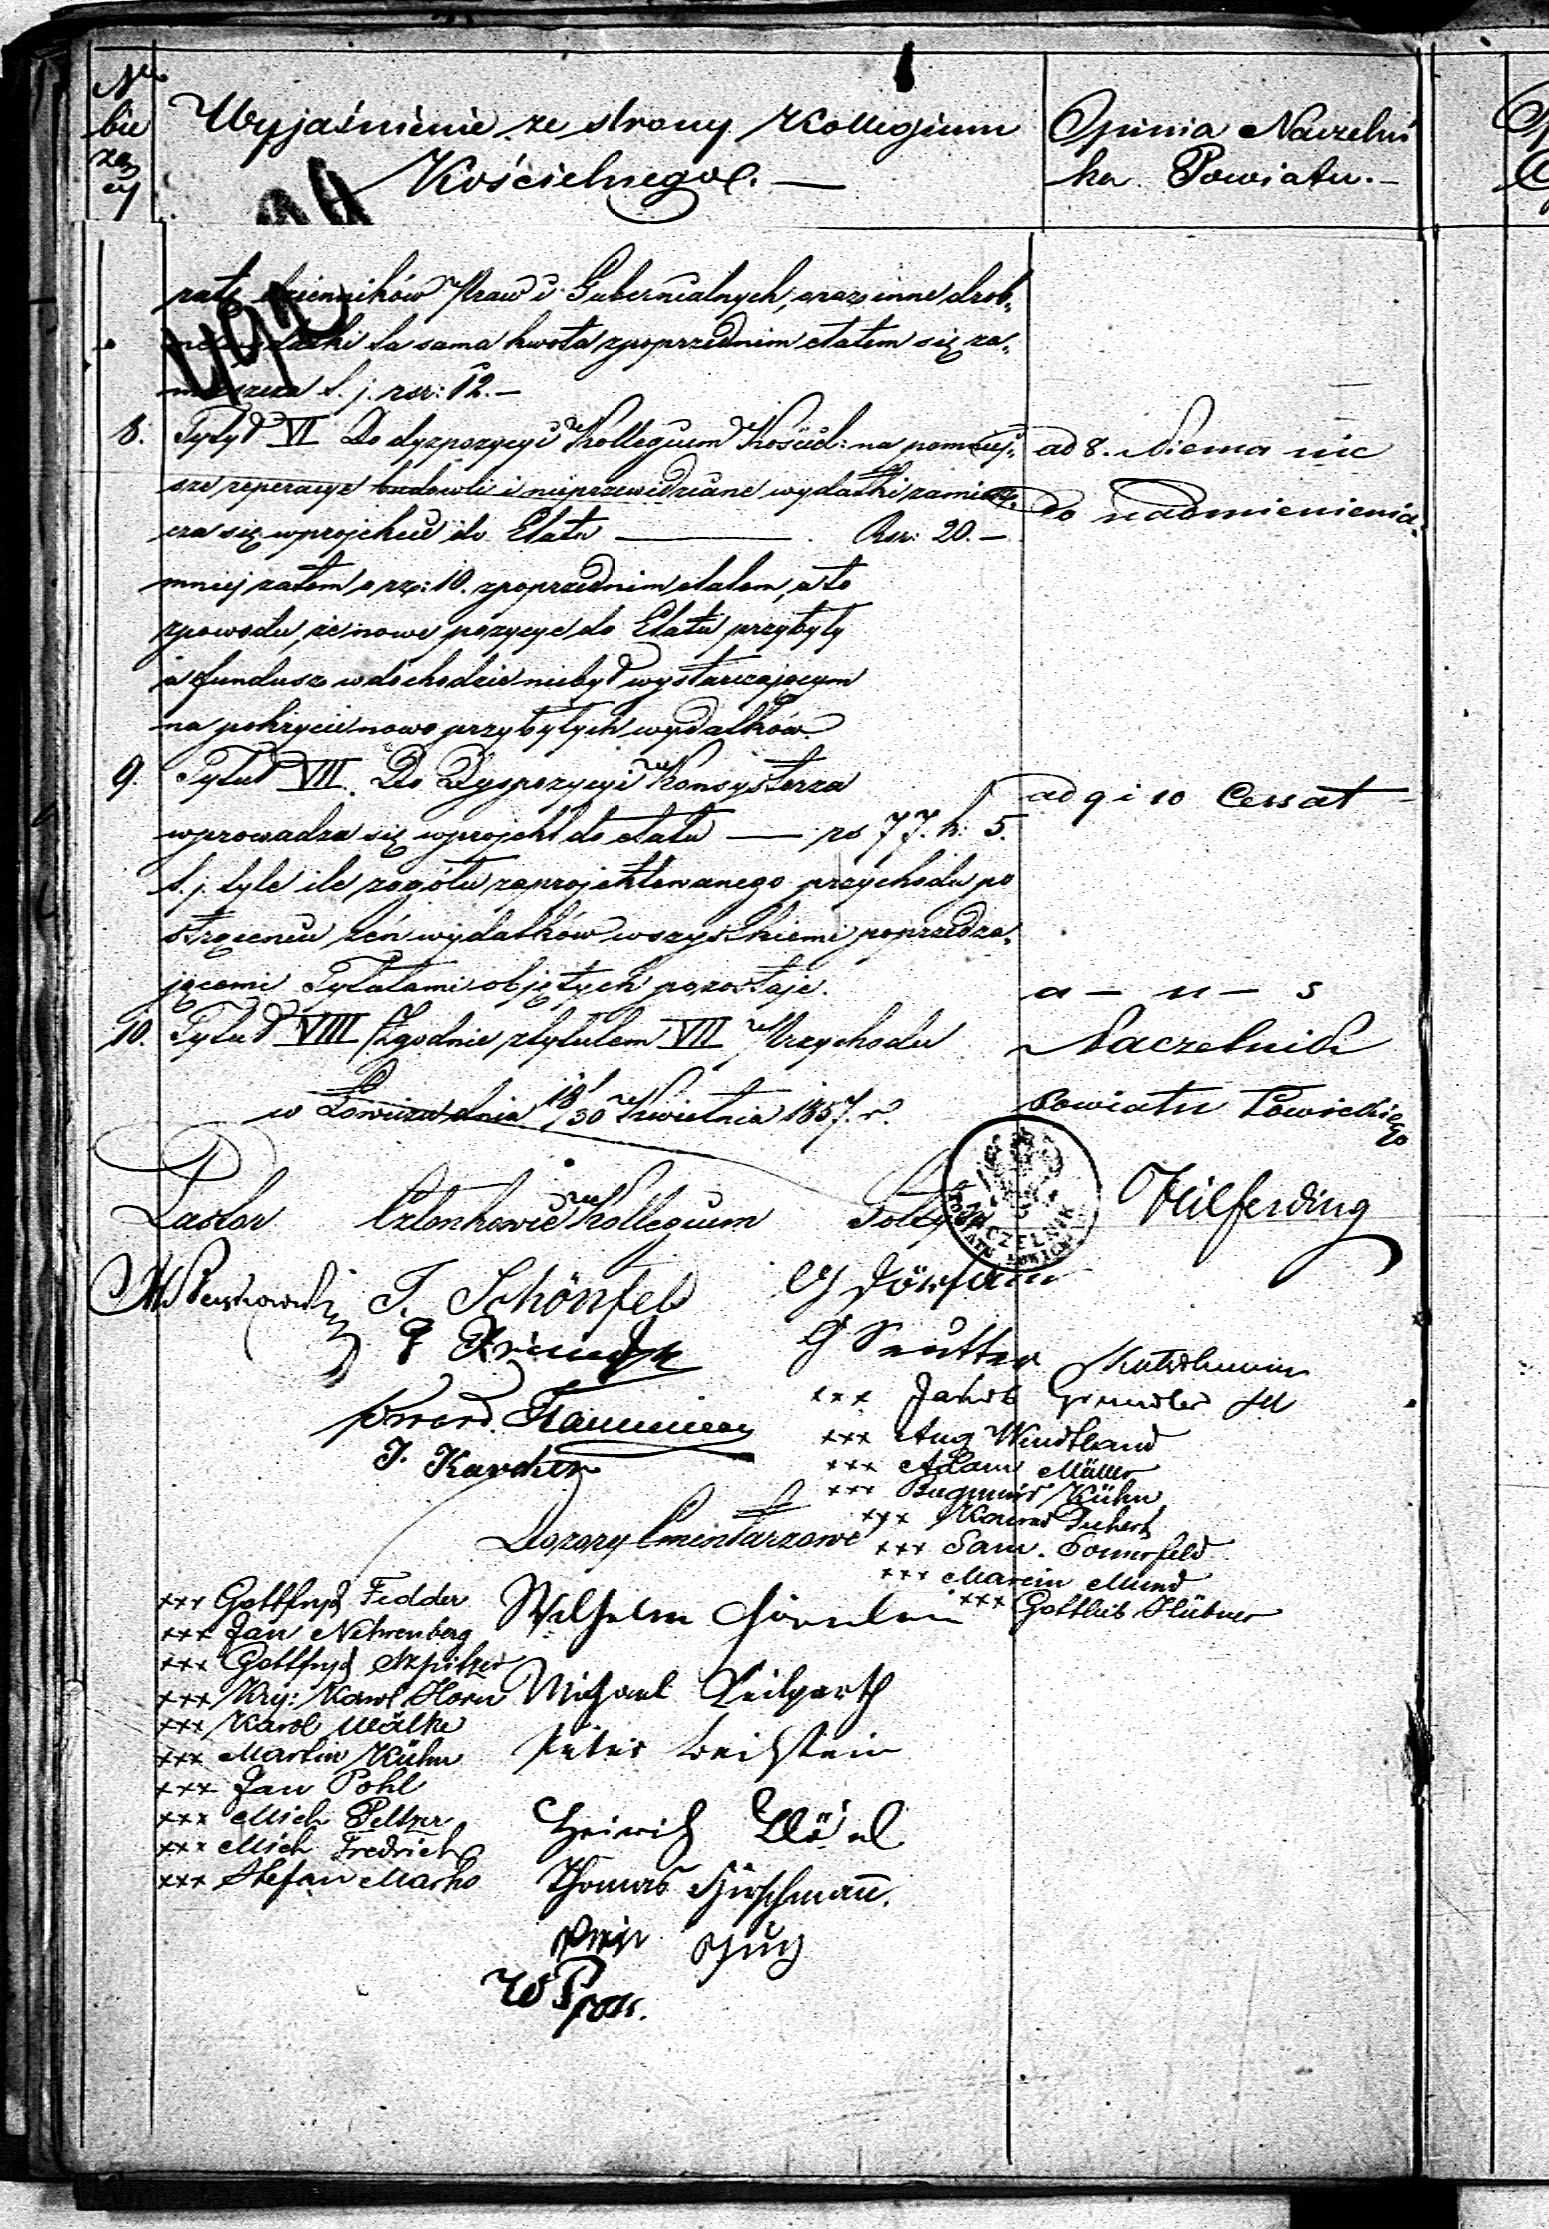 Nr
bie
żą
cy
Wyjaśnienie ze strony Kollegium
Kościelnego. —
Opinia Naczelni
ka Powiatu. —
ratę dzienników Praw i Gubernialnych, oraz inne drob-
ne wydatki ta sama kwota z poprzednim etatem się za-
mieszcza t. j. rsr: 12. —
8. Tytuł VI Do dyspozycyi Kollegium Kościel: na pomniej-
sze reperacye budowli i nieprzewidziane wydatki zamiesz-
cza się w projekcie do Etatu — Rsr: 20. —
mniej zatem o rs: 10. z poprzednim etatem, a to
z powodu, że nowe pozycye do Etatu przybyły
a fundusz w dochodzie niebył wystarczającym
na pokrycie nowo przybyłych wydatków.
ad 8. Niema nic
do nadmienienia.
9. Tytuł VII. Do Dyspozycyi Konsystorza
wprowadza się w projekt do etatu — rs 77. k: 5.
t. j. tyle ile z ogółu zaprojektowanego przychodu po
strąceniu zeń wydatków wszystkiemi poprzedza-
jącemi Tytułami objętych pozostaje.
ad 9 i 10 Cessat
10. Tytuł VIII Zgodnie z tytułem VII Przychodu
w Łowiczu dnia 18/30 Kwietnia 1857. r.
a — u — s
Naczelnik
Powiatu Łowickiego
Hilferding
NACZELNIK
Pastor
Członkowie Kollegium
Sołtysi
J. Schönfeld
J. Karcher
G Sautter
xxx Jakób Grundler
xxx Aug Windland
xxx Adam Müller
xxx Kühn
xxx Konrad
xxx Sam. Somerfeld
xxx Marcin Mund
xxx Gottlieb Hübner
Dozory Cmentarzowe
xxx Gottfryd Fedder
xxx Jan Nehrenberg
xxx Gottfryd Szpitzer
xxx Kry: Karol Horn
xxx Karol Mälke
xxx Martin Kühn
xxx Jan Pohl
xxx Mich Peltzer
xxx Mich Fredrich
xxx Stefan Marks
Wilhelm
Michael Heilgarth
Peter Weihstein
Heinrich
Thomas Hirschmann.